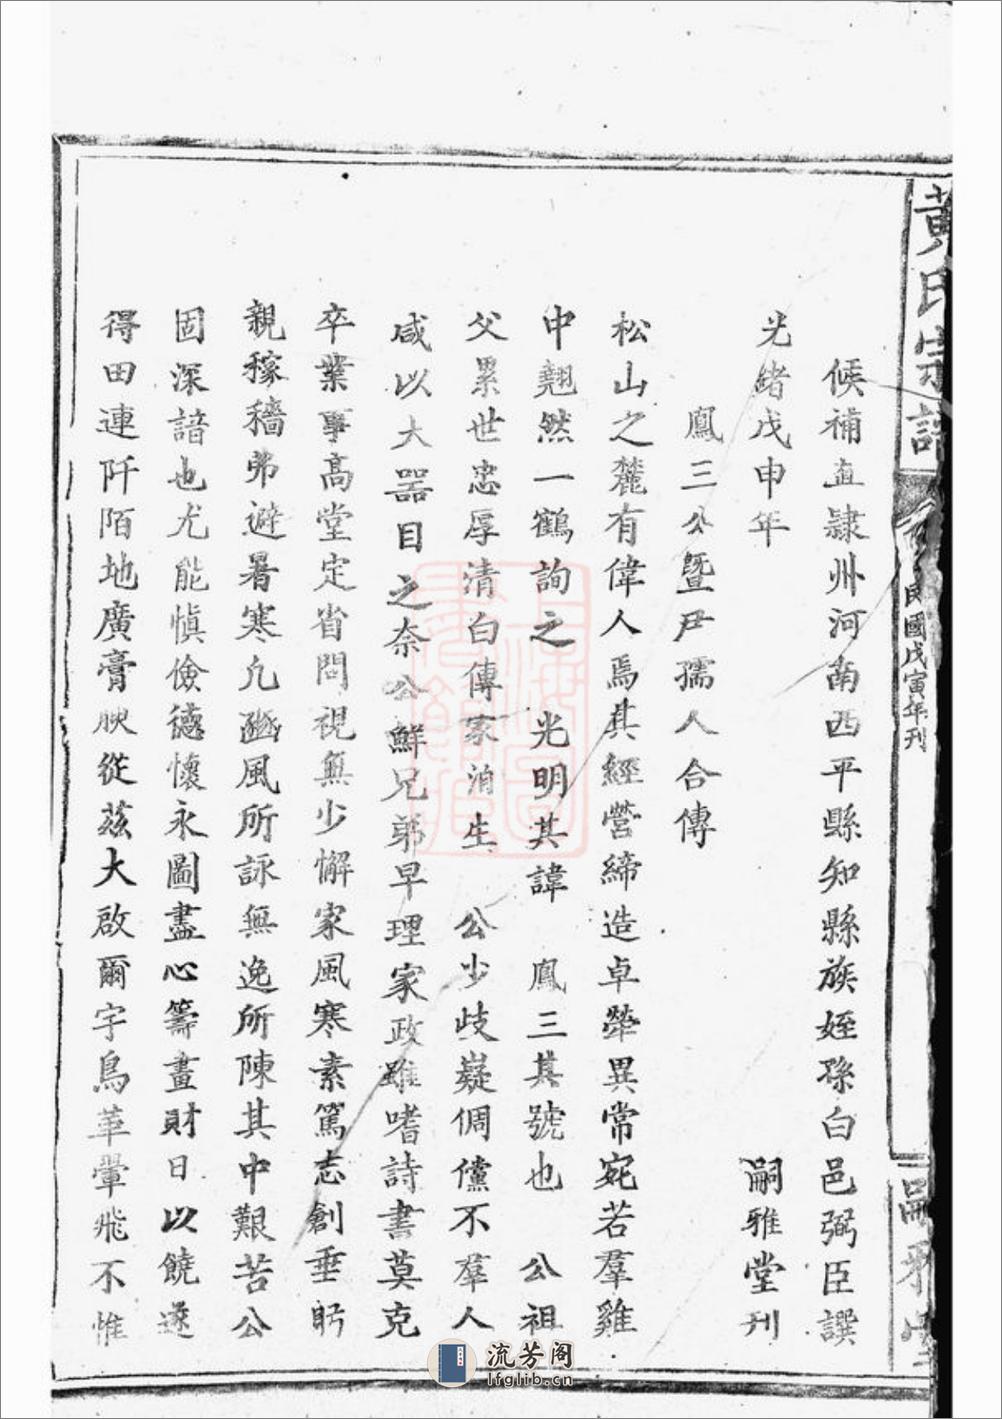 黃氏宗譜
民國戊寅年刊
嗣雅堂
候補直隸州河南西平縣知縣族姪孫白邑弼臣譔
光緒戊申年 嗣雅堂刊
鳳三公暨尹孺人合傳
松山之麓有偉人焉其經營締造卓犖異常宛若羣雞
中翹然一鶴詢之 光明其諱 鳳三其號也 公祖
父累世忠厚清白傳家洎生 公少歧嶷倜儻不羣人
咸以大器目之奈公鮮兄弟早理家政雖嗜詩書莫克
卒業事高堂定省問視無少懈家風寒素篤志創垂躬
親稼穡弗避暑寒凡豳風所詠無逸所陳其中艱苦公
固深諳也尤能慎儉德懷永圖盡心籌畫財日以饒遂
得田連阡陌地廣膏腴從茲大啟爾宇鳥革翬飛不惟
流芳阁
lfglib.cn